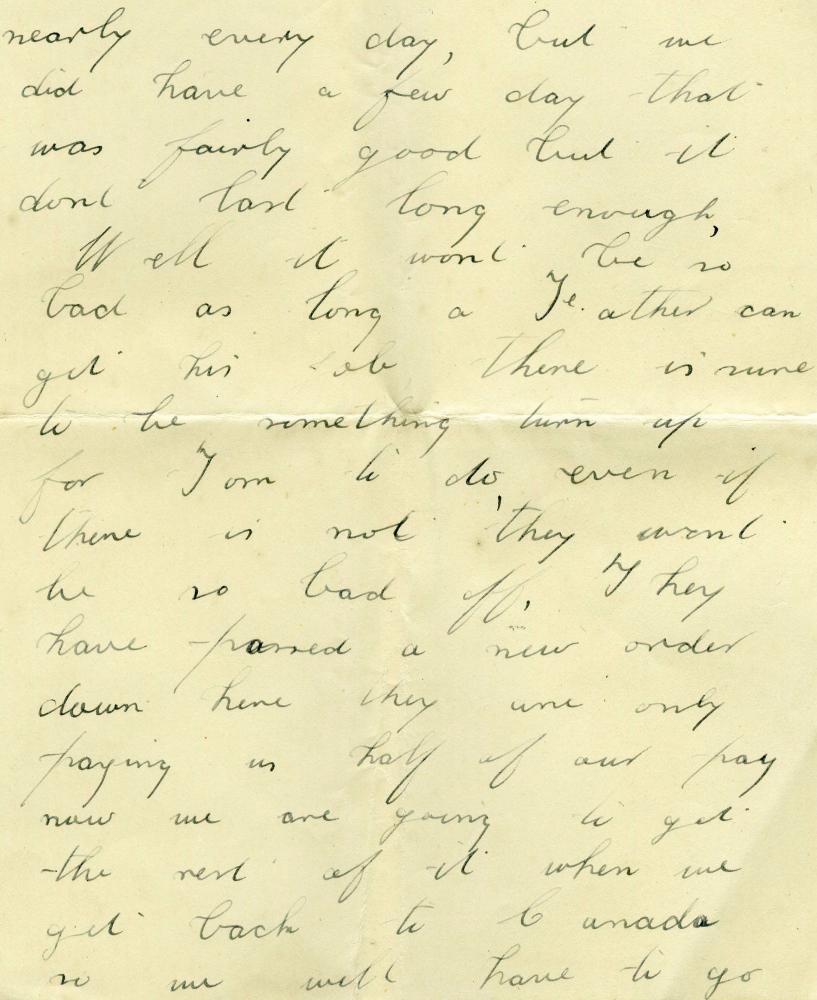 nearly every day, but we
did have a few day that
was fairly good but it
dont last long enough,
Well it wont be so
bad as long a Feather can
get his Job there is sure
to be something turn up
for Tom to do, even if
there is not they wont
be so bad off, They
have passed a new order
down here they are only
paying us half of our pay
now we are going to get
the rest of it when we
get back to Canada
so we will have to go